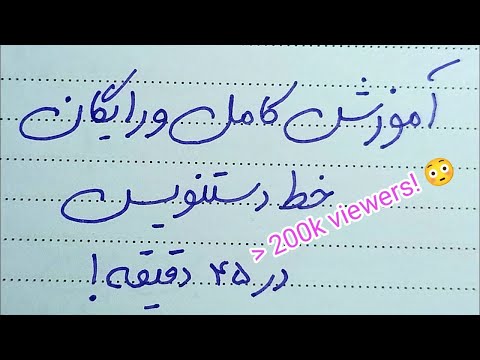 آموزش کامل و رایگان
خط دستنویس
> 200k viewers! 😳
در ۴۵ دقیقه!